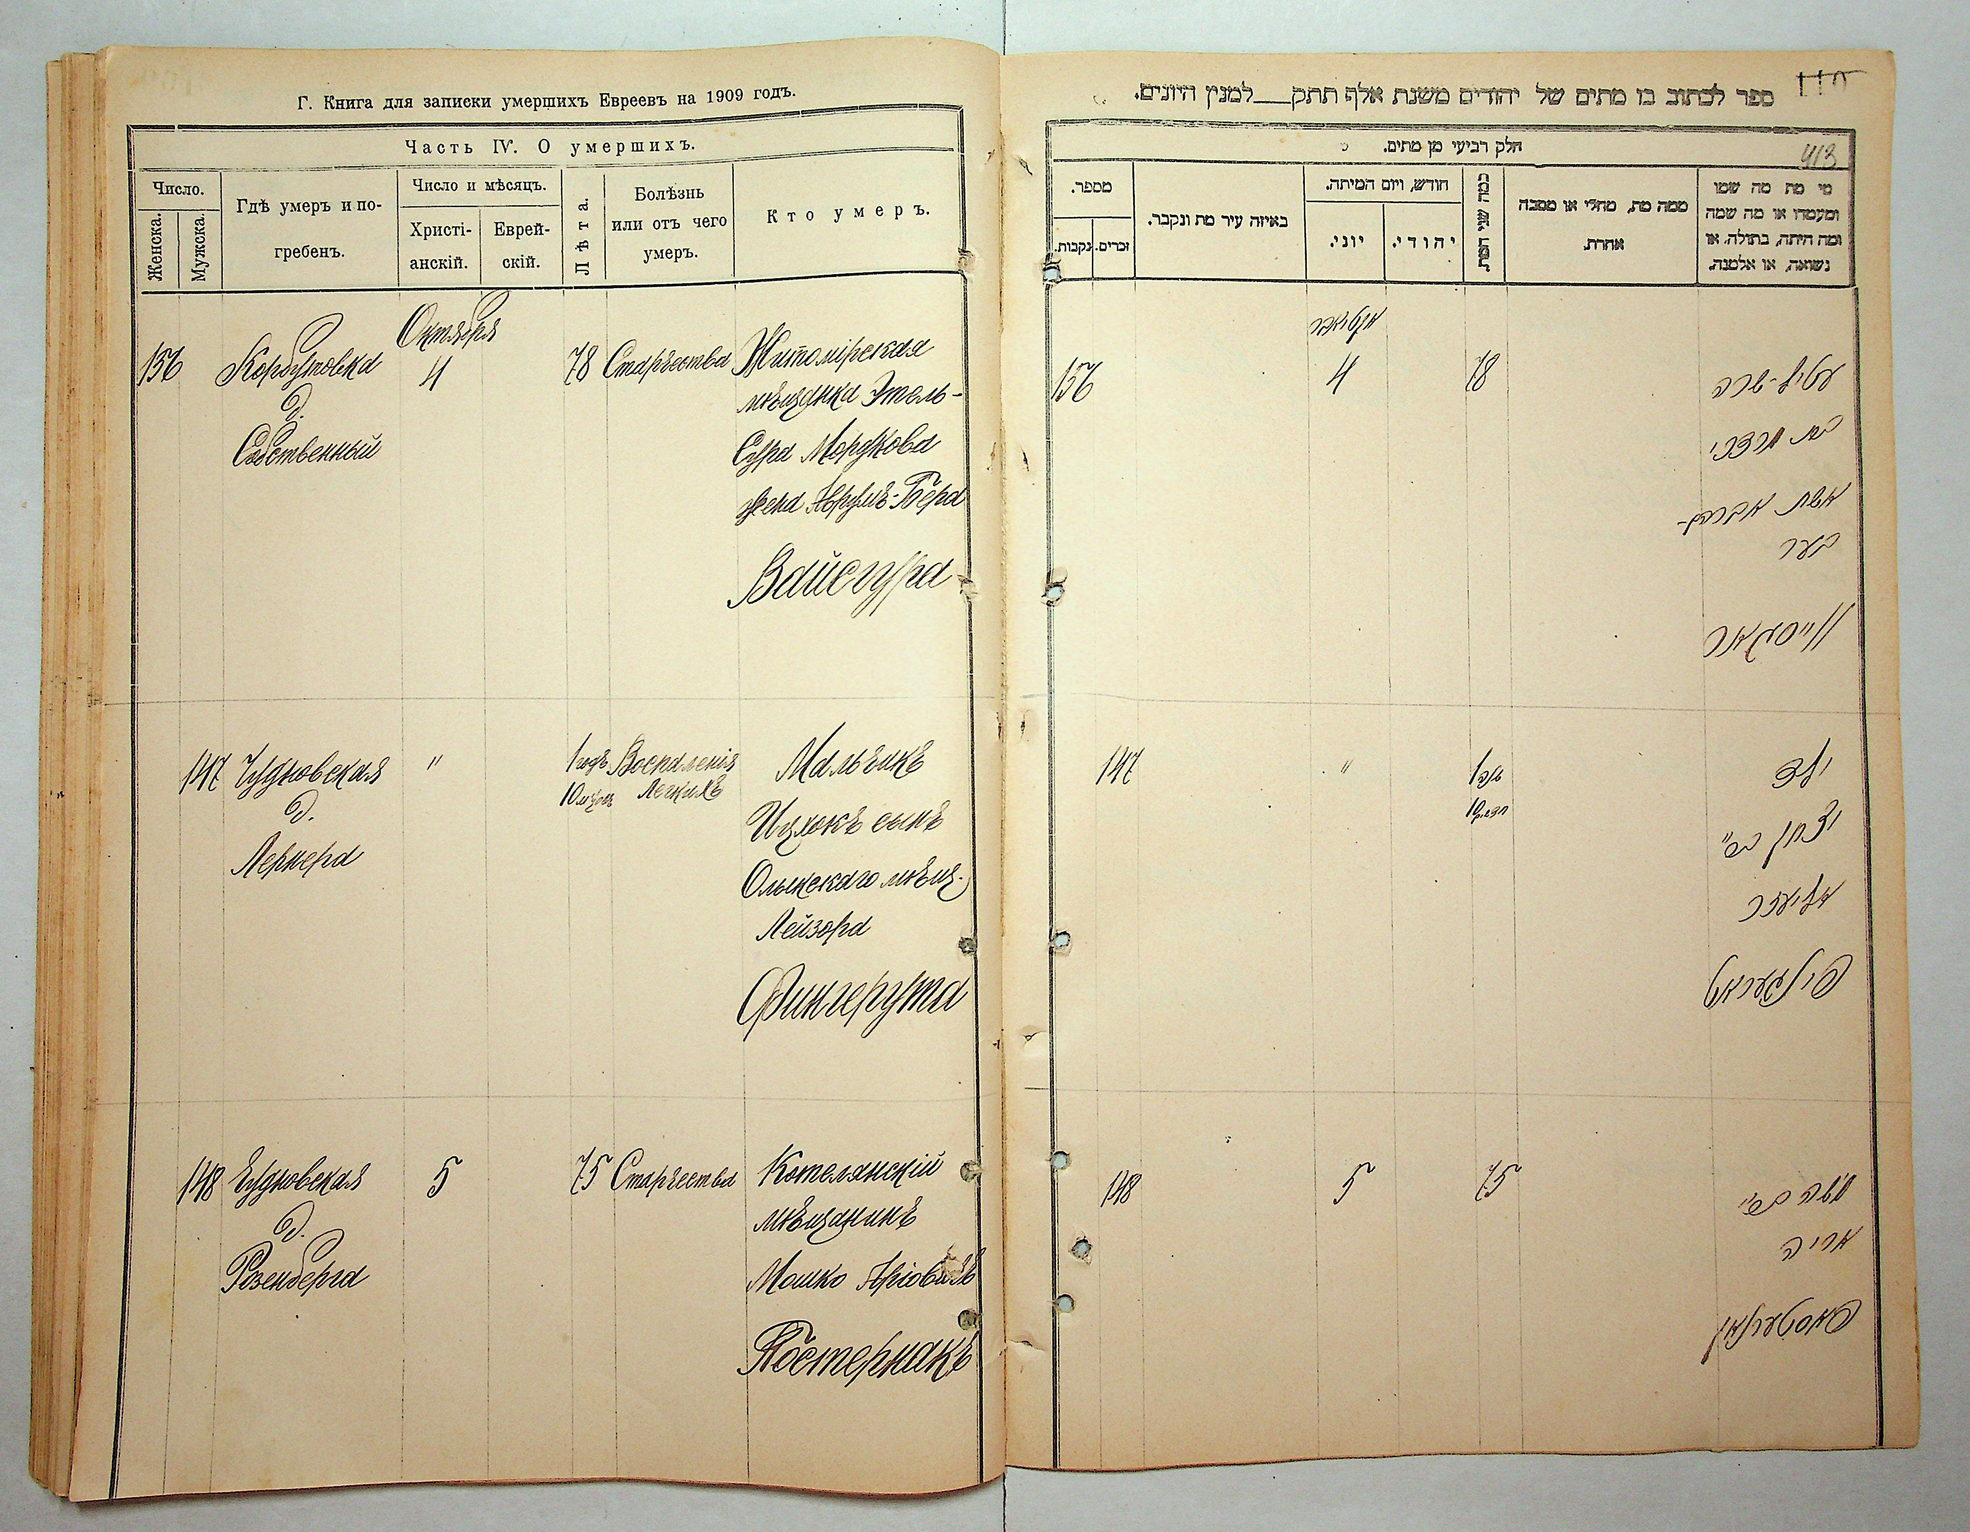 Г. Книга для записки умершихъ Евреевъ на 1909 годъ.
Часть IV. О умершихъ.
Число.
Женска.
Мужска.
Гдѣ умеръ и по-
гребенъ.
Число и мѣсяцъ.
Христі-
анскій.
Еврей-
скій.
Лѣта.
Болѣзнь
или отъ чего
умеръ.
Кто умеръ.
156
Корбутовка
д.
Собственный
Октября
4
78
Старчества
Житомірская
мѣщанка Этель-
Сура Мордкова
жена Аврумъ-Бера
Вайсгура
147
Чудновская
д.
Лернера
"
1 годъ
10 мѣсяц
Воспаленія
Легкихъ
Мальчикъ
Ицхокъ сынъ
Олыкскаго мѣщ.
Лейзора
Фингерута
148
Чудновская
д.
Розенберга
5
75
Старчества
Котелянскій
мѣщанинъ
Мошко Аріовичъ
Постернакъ
ספר לכתוב בו מתים של יהודים משנת אלף תתק__למנין היונים.
110
413
חלק רביעי מן מתים.
מספר.
נקבות.
זכרים.
באיזה עיר מת ונקבר.
חודש, ויום המיתה.
יוני.
יהודי.
כמה שני המת.
ממה מת, מחלי או מסבה
אחרת.
מי מת מה שמו
ומעמדו או מה שמה
ומה היתה, בתולה, או
נשואה, או אלמנה.
156
אקטיאבר
4
78
עטיל-שרה
בת מרדכי
אשת אברהם-
בער
ווייסגאור
147
"
1
10
ילד
יצחק ב"
אליעזר
פינגערוט
148
5
75
משה ב"
אריה
פאסטערנאק